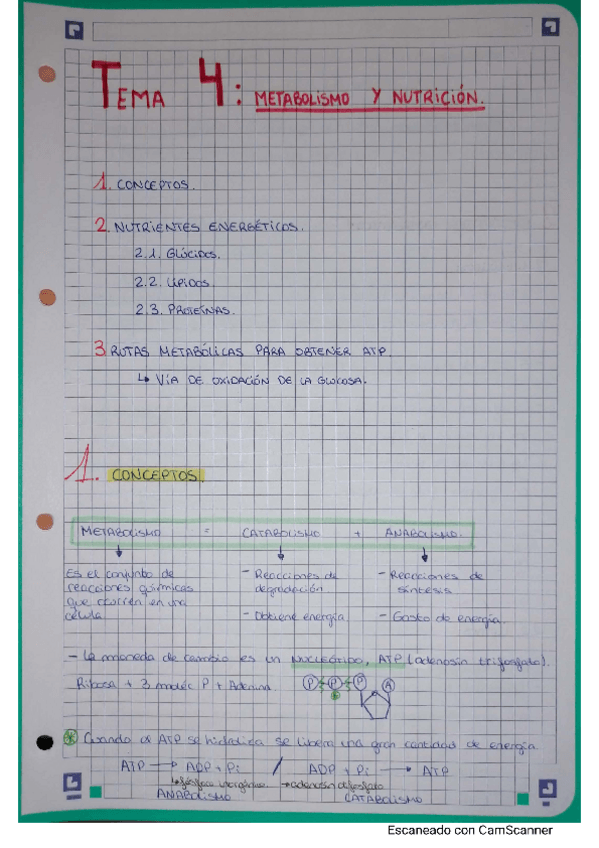 TEMA 4: METABOLISMO Y NUTRICIÓN.
1. CONCEPTOS.
2. NUTRIENTES ENERGÉTICOS.
2.1. GLÚCIDOS.
2.2. LÍPIDOS.
2.3. PROTEÍNAS.
3 RUTAS METABÓLICAS PARA OBTENER ATP.
↳ VÍA DE OXIDACIÓN DE LA GLUCOSA.
1. CONCEPTOS.
METABOLISMO = CATABOLISMO + ANABOLISMO.
Es el conjunto de - Reacciones de - Reacciones de
reacciones químicas degradación síntesis
que ocurren en una - Obtiene energía. - Gasto de energía.
célula
- La moneda de cambio es un NUCLEÓTIDO, ATP (adenosín trifosfato).
Ribosa + 3 moléc P + Adenina. P P P A
* Cuando el ATP se hidroliza se libera una gran cantidad de energía
ATP → ADP + Pi / ADP + Pi → ATP
↳ fósforo inorgánico. → adenosín difosfato
ANABOLISMO CATABOLISMO
Escaneado con CamScanner